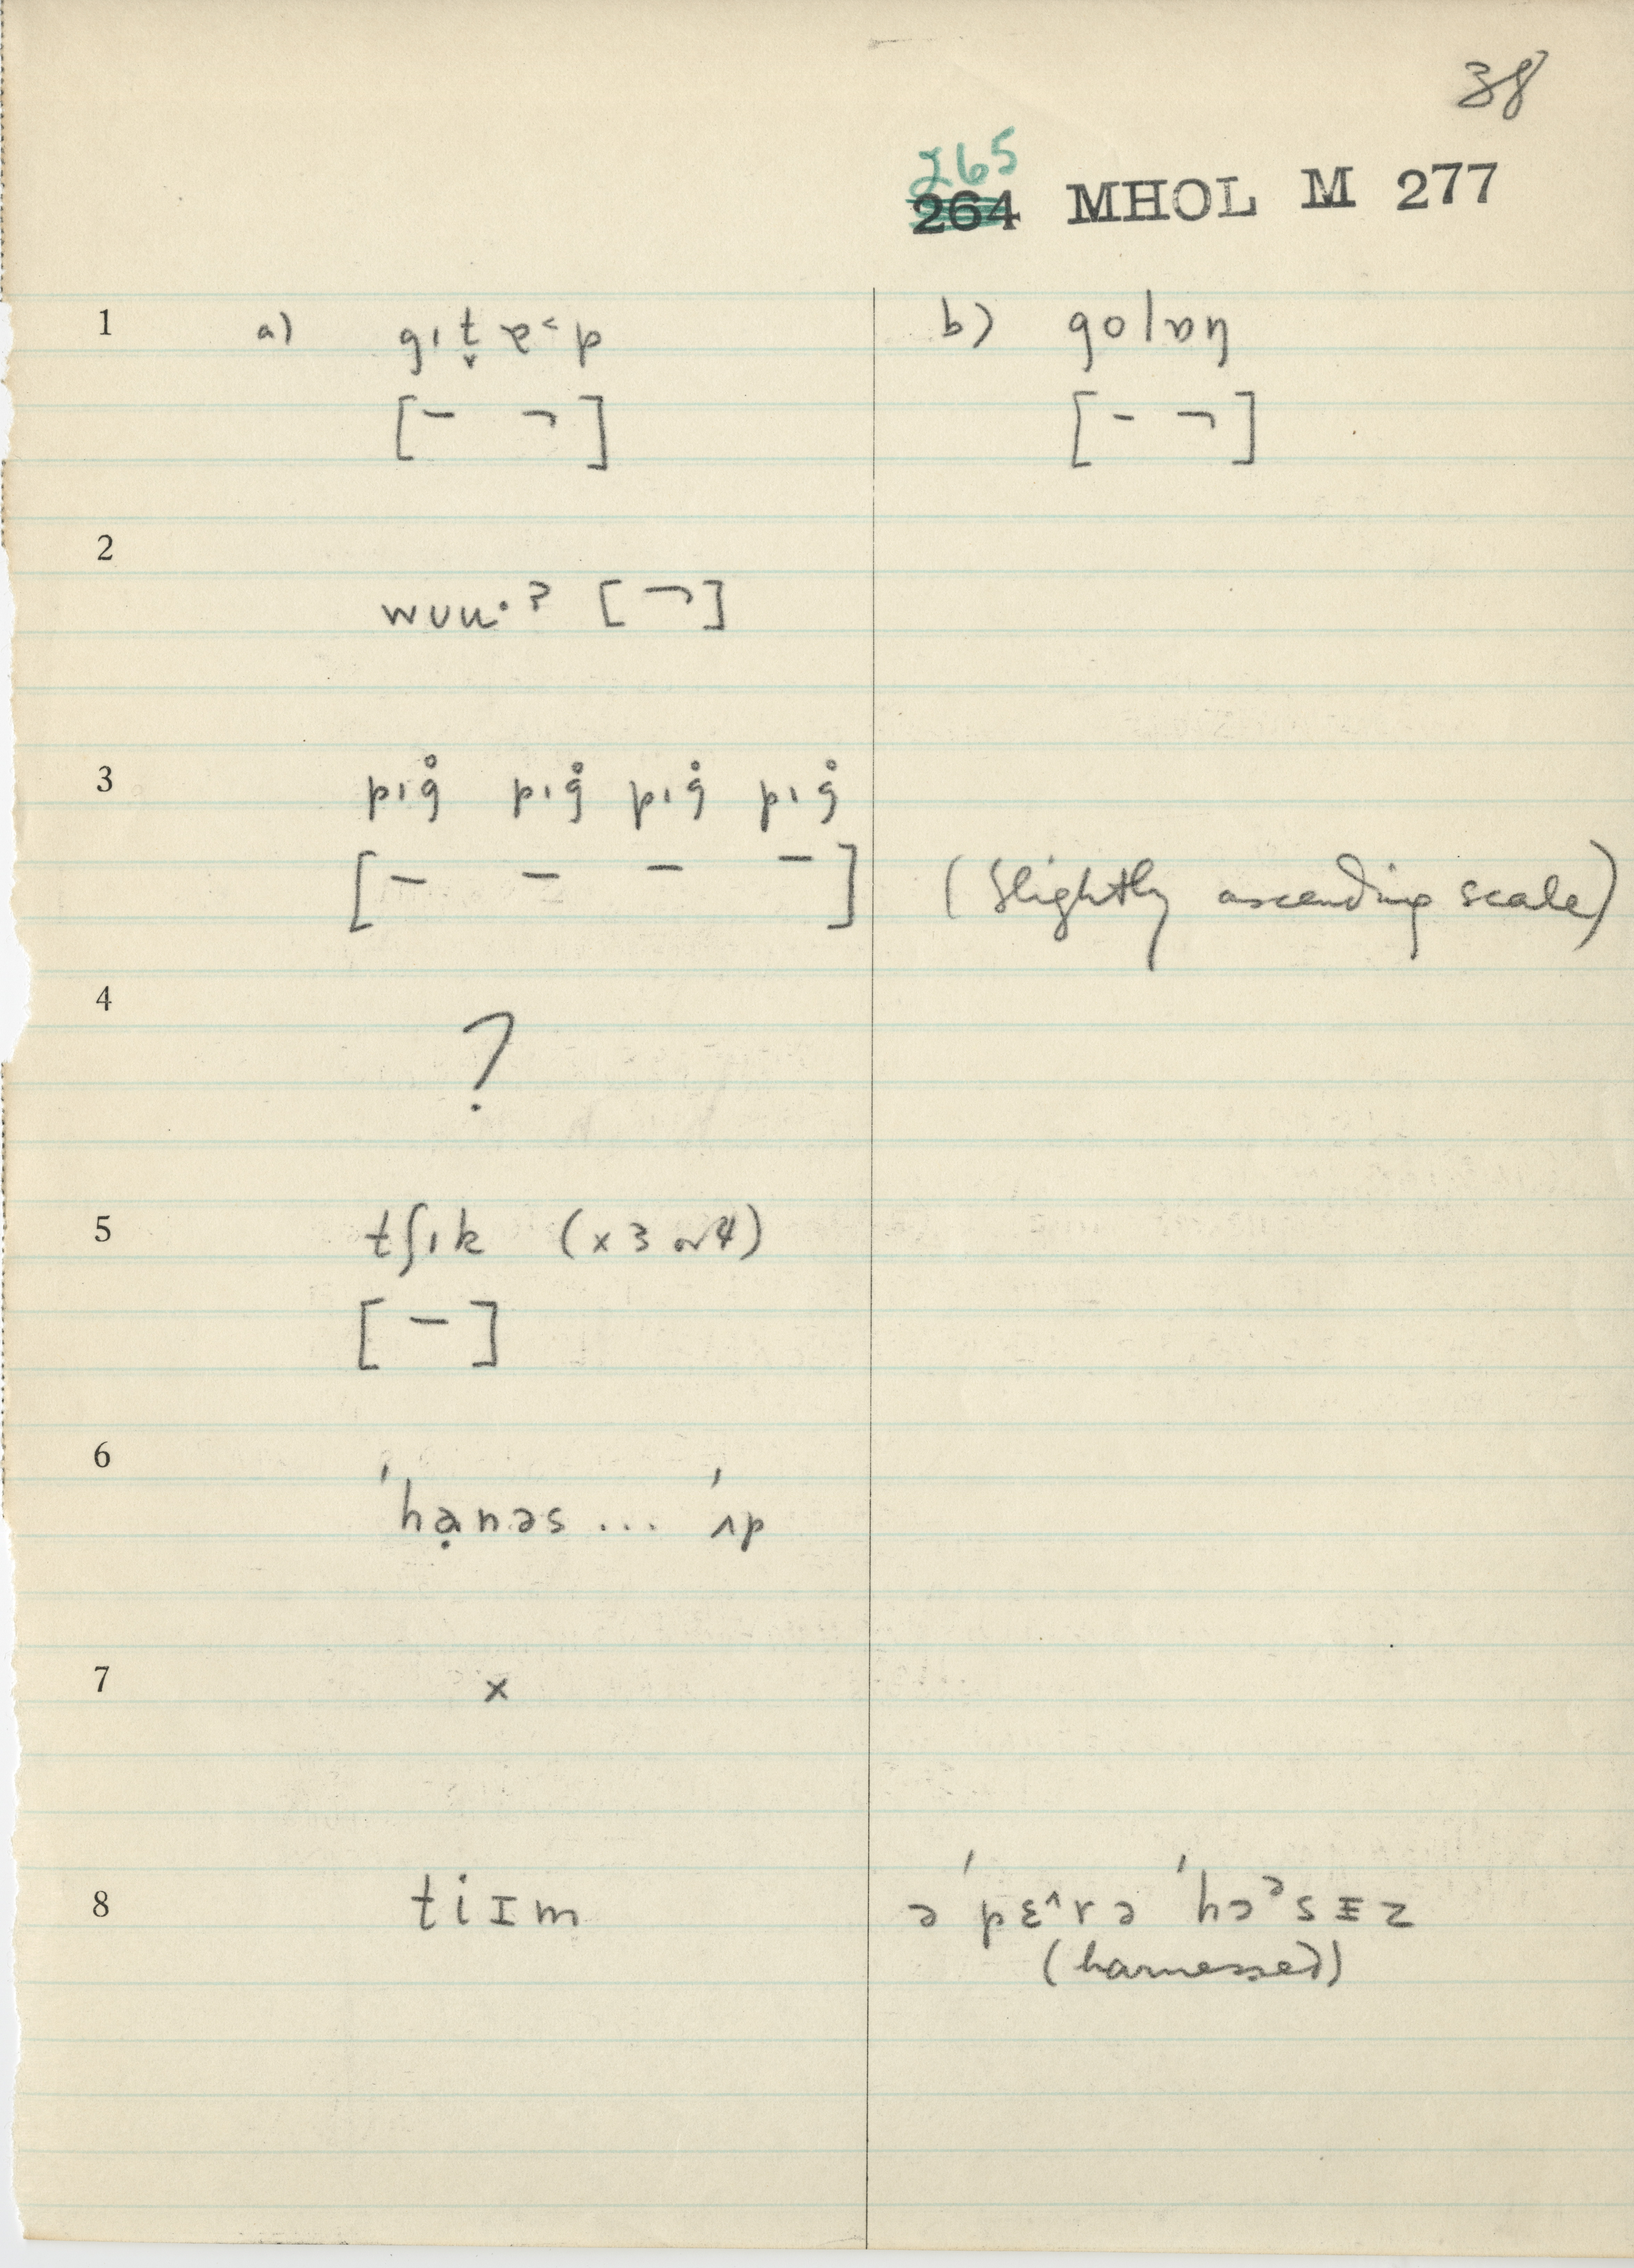 38
265
264 MHOL M 277
1 a) gɪt̬ɐ˂p b) golɒŋ
[– ¬] [– ¬]
2
wuu·ʔ [¬]
3 pɪg̊ pɪg̊ pɪg̊ pɪg̊
[– – – –] (slightly ascending scale)
4
?
5 tʃɪk (x 3 or 4)
[–]
6
ˈhạnəs ... ˈʌp
7 x
8 tiɪm ə ˈpɛ^rə ˈhɔᵊsɪz
(harnessed)